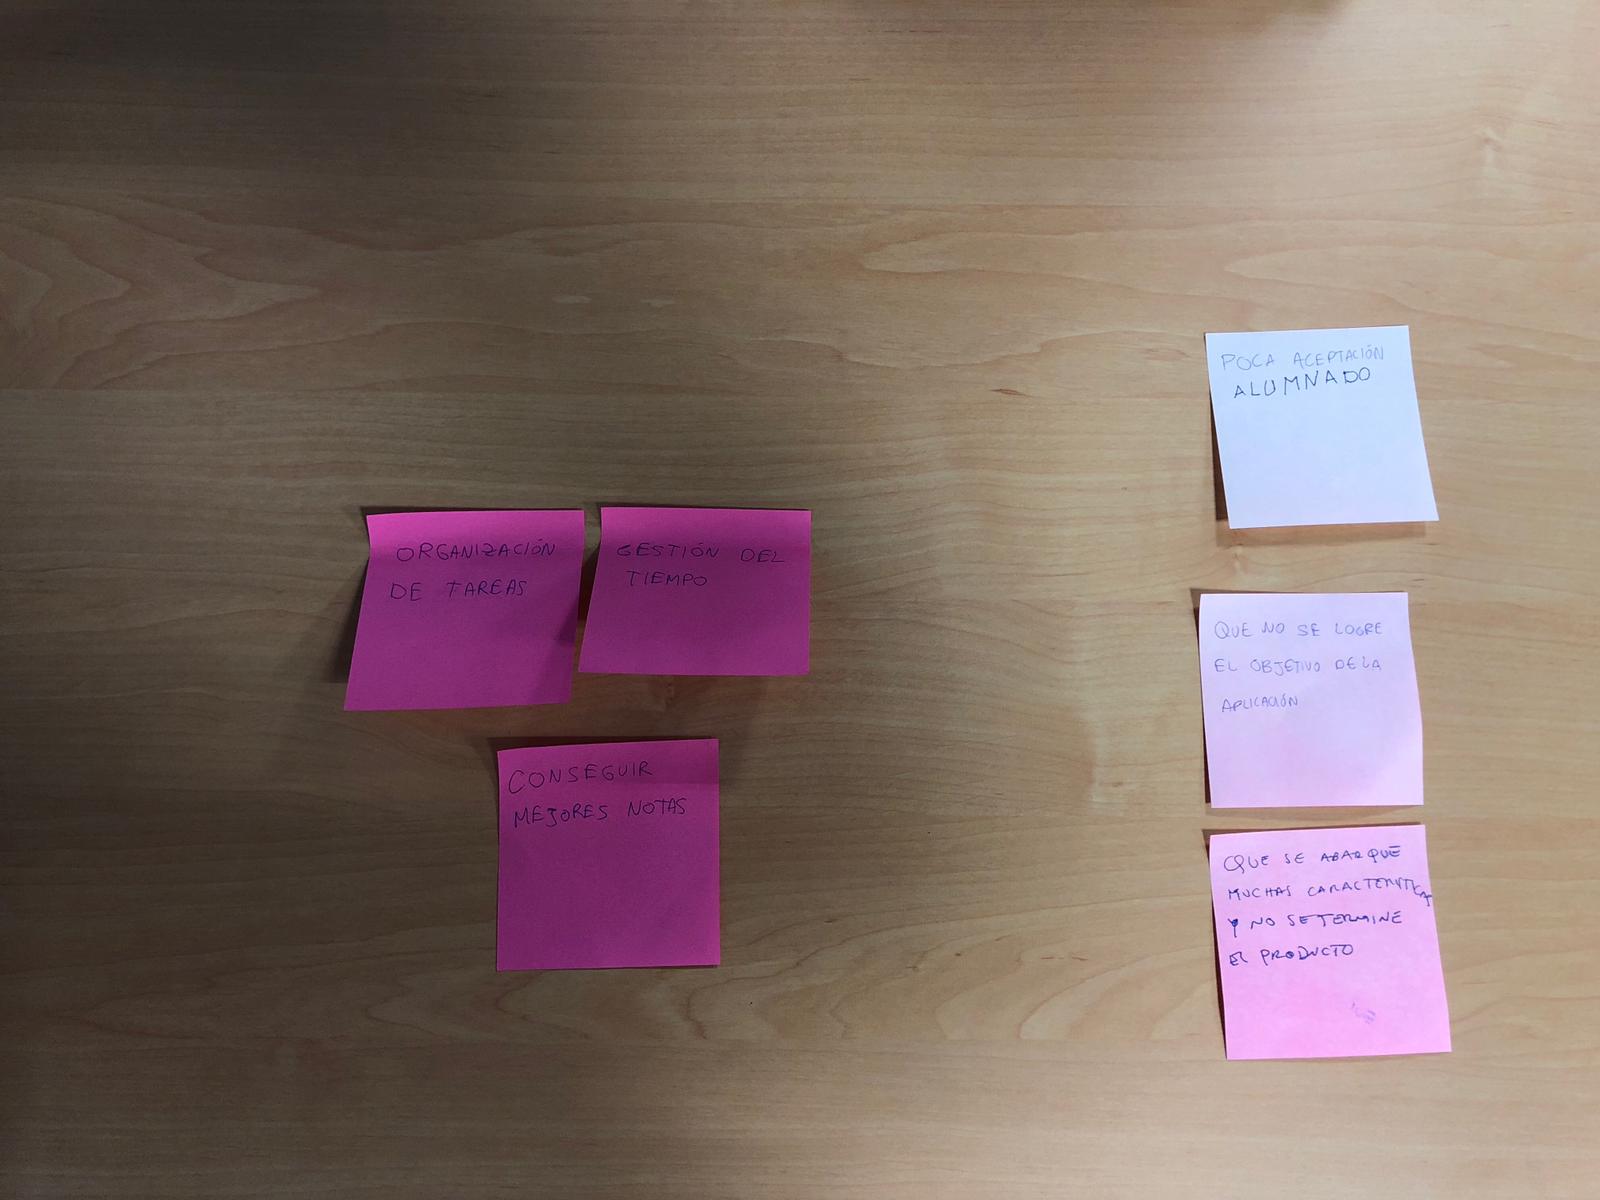 ORGANIZACIÓN
DE TAREAS
GESTIÓN DEL
TIEMPO
CONSEGUIR
MEJORES NOTAS
POCA ACEPTACIÓN
ALUMNADO
QUE NO SE LOGRE
EL OBJETIVO DE LA
APLICACIÓN
QUE SE ABARQUE
MUCHAS CARACTERISTICAS
Y NO SE TERMINE
EL PRODUCTO